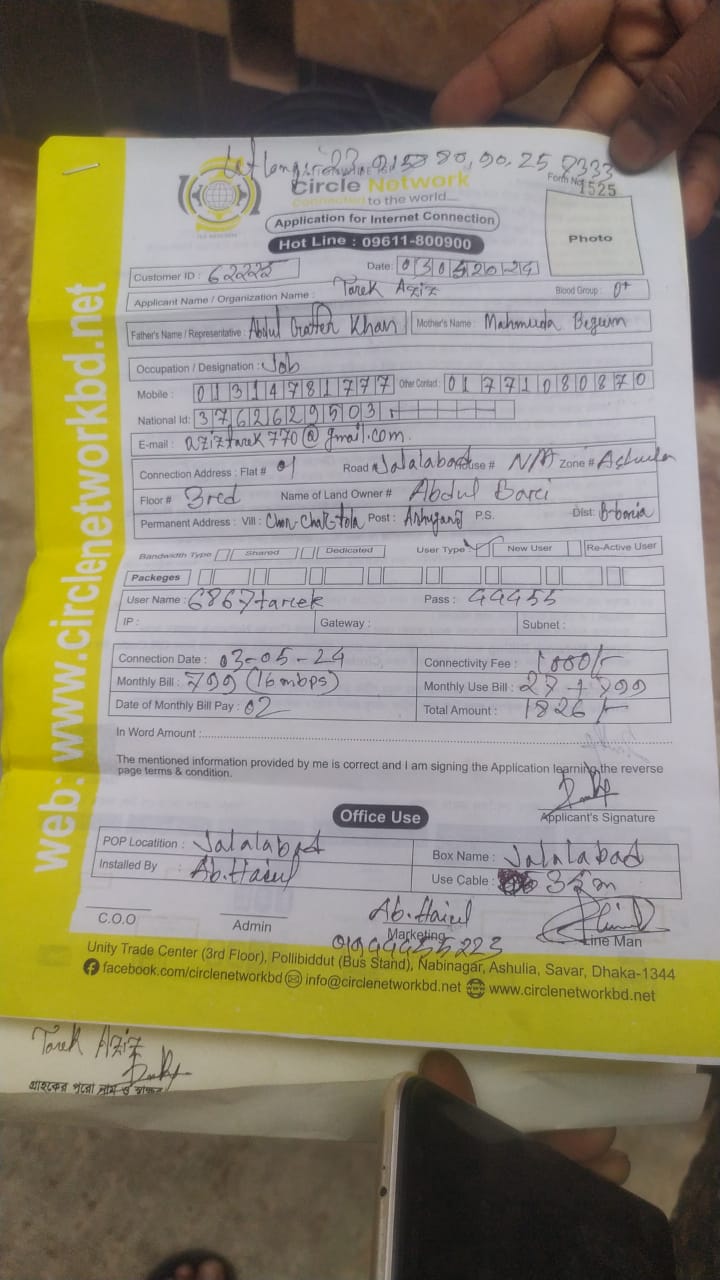 Form No
1525
Circle Network
Connected to the world...
Application for Internet Connection
Hot Line : 09611-800900
Photo
Customer ID : 62225 Date: 03052024
Applicant Name / Organization Name : Tarek Aziz Blood Group : O+
Father's Name / Representative : Abdul Khan Mother's Name : Mahmuda Begum
Occupation / Designation : Job
Mobile : 01314781777 Other Contact : 01771080870
National Id: 3762629503
E-mail : aziztarek770@gmail.com.
Connection Address : Flat # 01 Road Jalalabad House # N/A Zone # Ashulia
Floor # 3red Name of Land Owner # Abdul Bari
Permanent Address : Vill : Chor-Char-tola Post : Ashuganj P.S. Dist: B-baria
Bandwidth Type Shared Dedicated User Type New User Re-Active User
Packeges
User Name : 6867tareek Pass : 44455
IP : Gateway : Subnet :
Connection Date : 03-05-24 Connectivity Fee : 1000/-
Monthly Bill : 799 (16mbps) Monthly Use Bill : 27 + 799
Date of Monthly Bill Pay : 02 Total Amount : 1826/-
In Word Amount :
The mentioned information provided by me is correct and I am signing the Application learning the reverse
page terms & condition.
Applicant's Signature
Office Use
POP Locatition : Jalalabad Box Name : Jalalabad
Installed By : Ab. Use Cable :
Ab.
C.O.O Admin Marketing Line Man
01944455223
Unity Trade Center (3rd Floor), Pollibiddut (Bus Stand), Nabinagar, Ashulia, Savar, Dhaka-1344
facebook.com/circlenetworkbd info@circlenetworkbd.net www.circlenetworkbd.net
web: www.circlenetworkbd.net
Tarek Aziz
গ্রাহকের পুরো নাম ও স্বাক্ষর